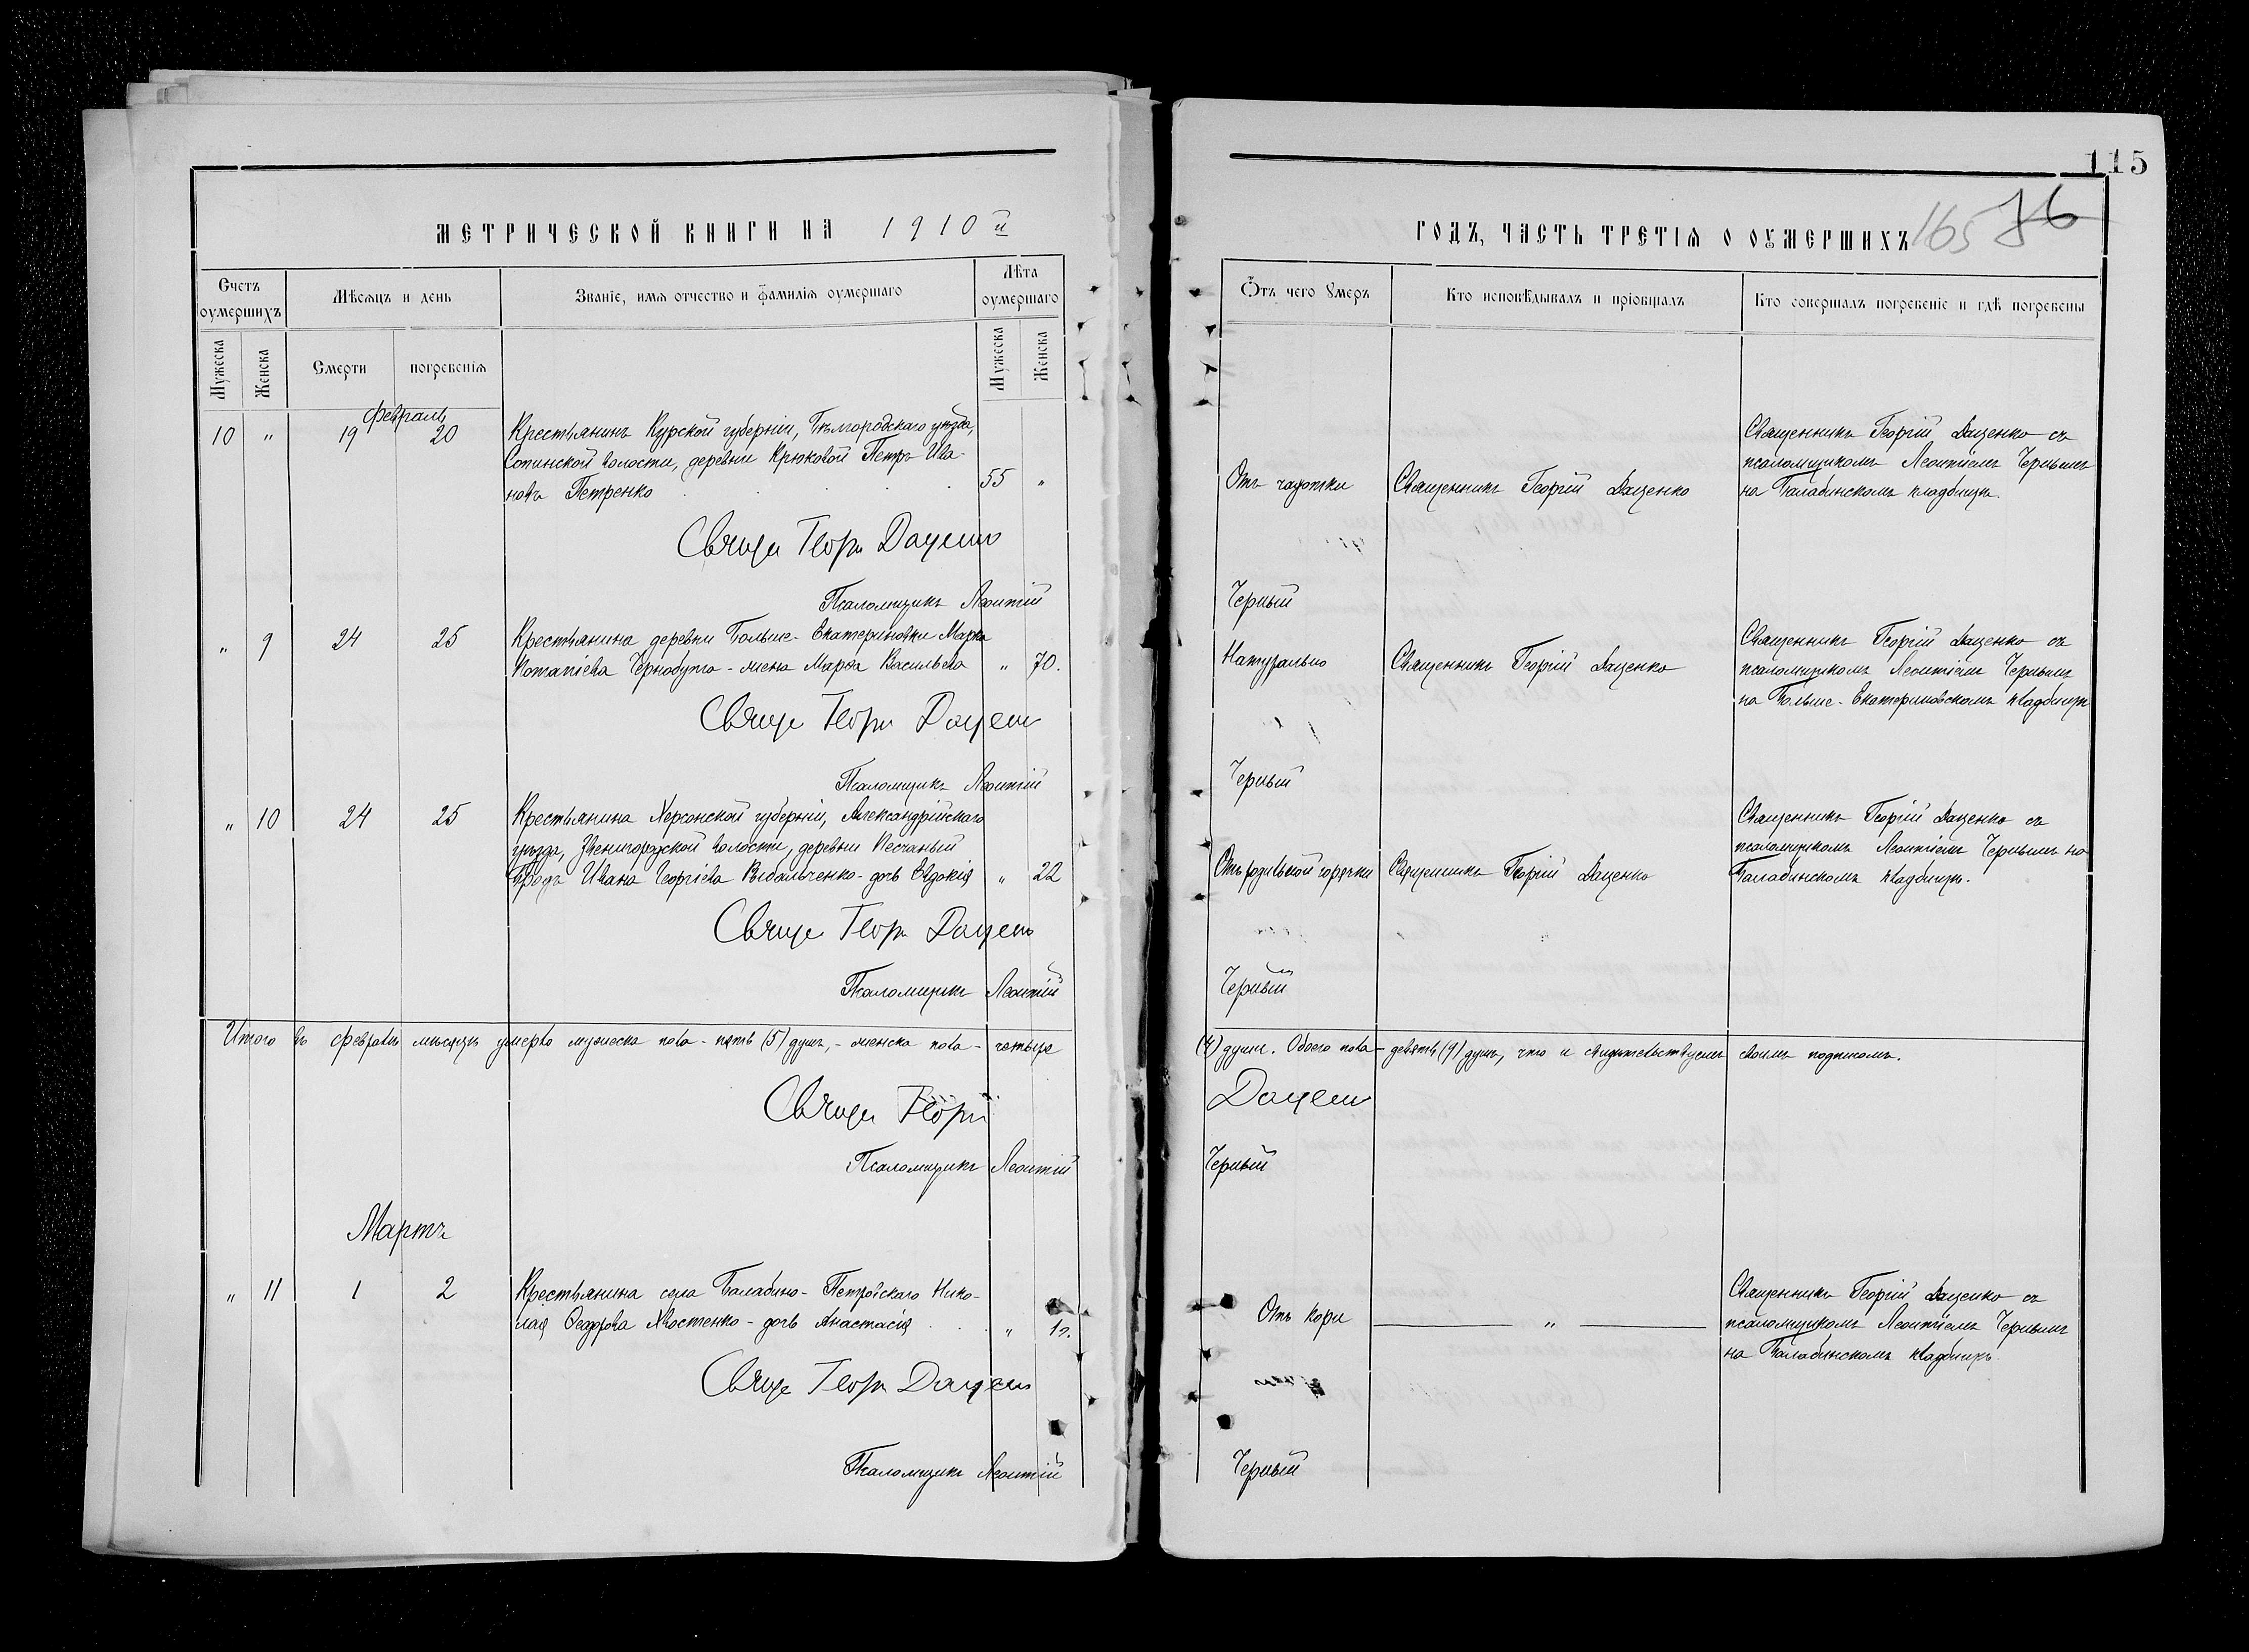 115
165 76
МЕТРИЧЕСКОЙ КНИГИ НА 1910й
ГОДЪ, ЧАСТЬ ТРЕТІЯ О ОУМЕРШИХЪ
Счетъ оумершихъ
Мѣсяцъ и день
Званіе, имя отчество и фамилія оумершаго
Лѣта оумершаго
Мужеска
Женска
Смерти
погребенія
Мужеска
Женска
Отъ чего умеръ
Кто исповѣдывалъ и пріобщалъ
Кто совершалъ погребеніе и гдѣ погребены
Февраль
10 " 19 20
Крестьянинъ Курской губерніи, Бѣлгородскаго уѣзда,
Сопинской волости, деревни Крюковой Петръ Ива-
новъ Петренко 55 "
Отъ чахотки
Священникъ Георгій Даценко
Священникъ Георгій Даценко съ
псаломщикомъ Леонтіемъ Чернымъ
на Балабинскомъ кладбищѣ.
Свящ Георг Даценко
Псаломщикъ Леонтій Черный
" 9 24 25
Крестьянина деревни Больше-Екатериновки Марка
Потапіева Чернобута - жена Марѳа Васильева " 70.
Натурально
Священникъ Георгій Даценко
Священникъ Георгій Даценко съ
псаломщикомъ Леонтіемъ Чернымъ
на Больше-Екатериновскомъ кладбищѣ
Свящ Георг Даценко
Псаломщикъ Леонтій Черный
" 10 24 25
Крестьянина Херсонской губерніи, Александрійскаго
уѣзда, Звенигородской волости, деревни Песчаный
Бродъ Ивана Георгіева Рыбальченко - дочь Евдокія " 22
Отъ родильной горячки
Священникъ Георгій Даценко
Священникъ Георгій Даценко съ
псаломщикомъ Леонтіемъ Чернымъ на
Балабинскомъ кладбищѣ.
Свящ Георг Даценко
Псаломщикъ Леонтій Черный
Итого въ февралѣ мѣсяцѣ умерло мужеска пола - пять (5) душъ, - женска пола - четыре (4) души. Обоего пола - девять (9) душъ, что и свидѣтельствуемъ своимъ подписомъ.
Свящ Георгій Даценко
Псаломщикъ Леонтій Черный
Мартъ
" 11 1 2
Крестьянина села Балабино-Петровскаго Нико-
лая Ѳеодорова Хвостенко - дочь Анастасія " 1г.
Отъ кори
"
Священникъ Георгій Даценко съ
псаломщикомъ Леонтіемъ Чернымъ
на Балабинскомъ кладбищѣ.
Свящ Георг Даценко
Псаломщикъ Леонтій Черный